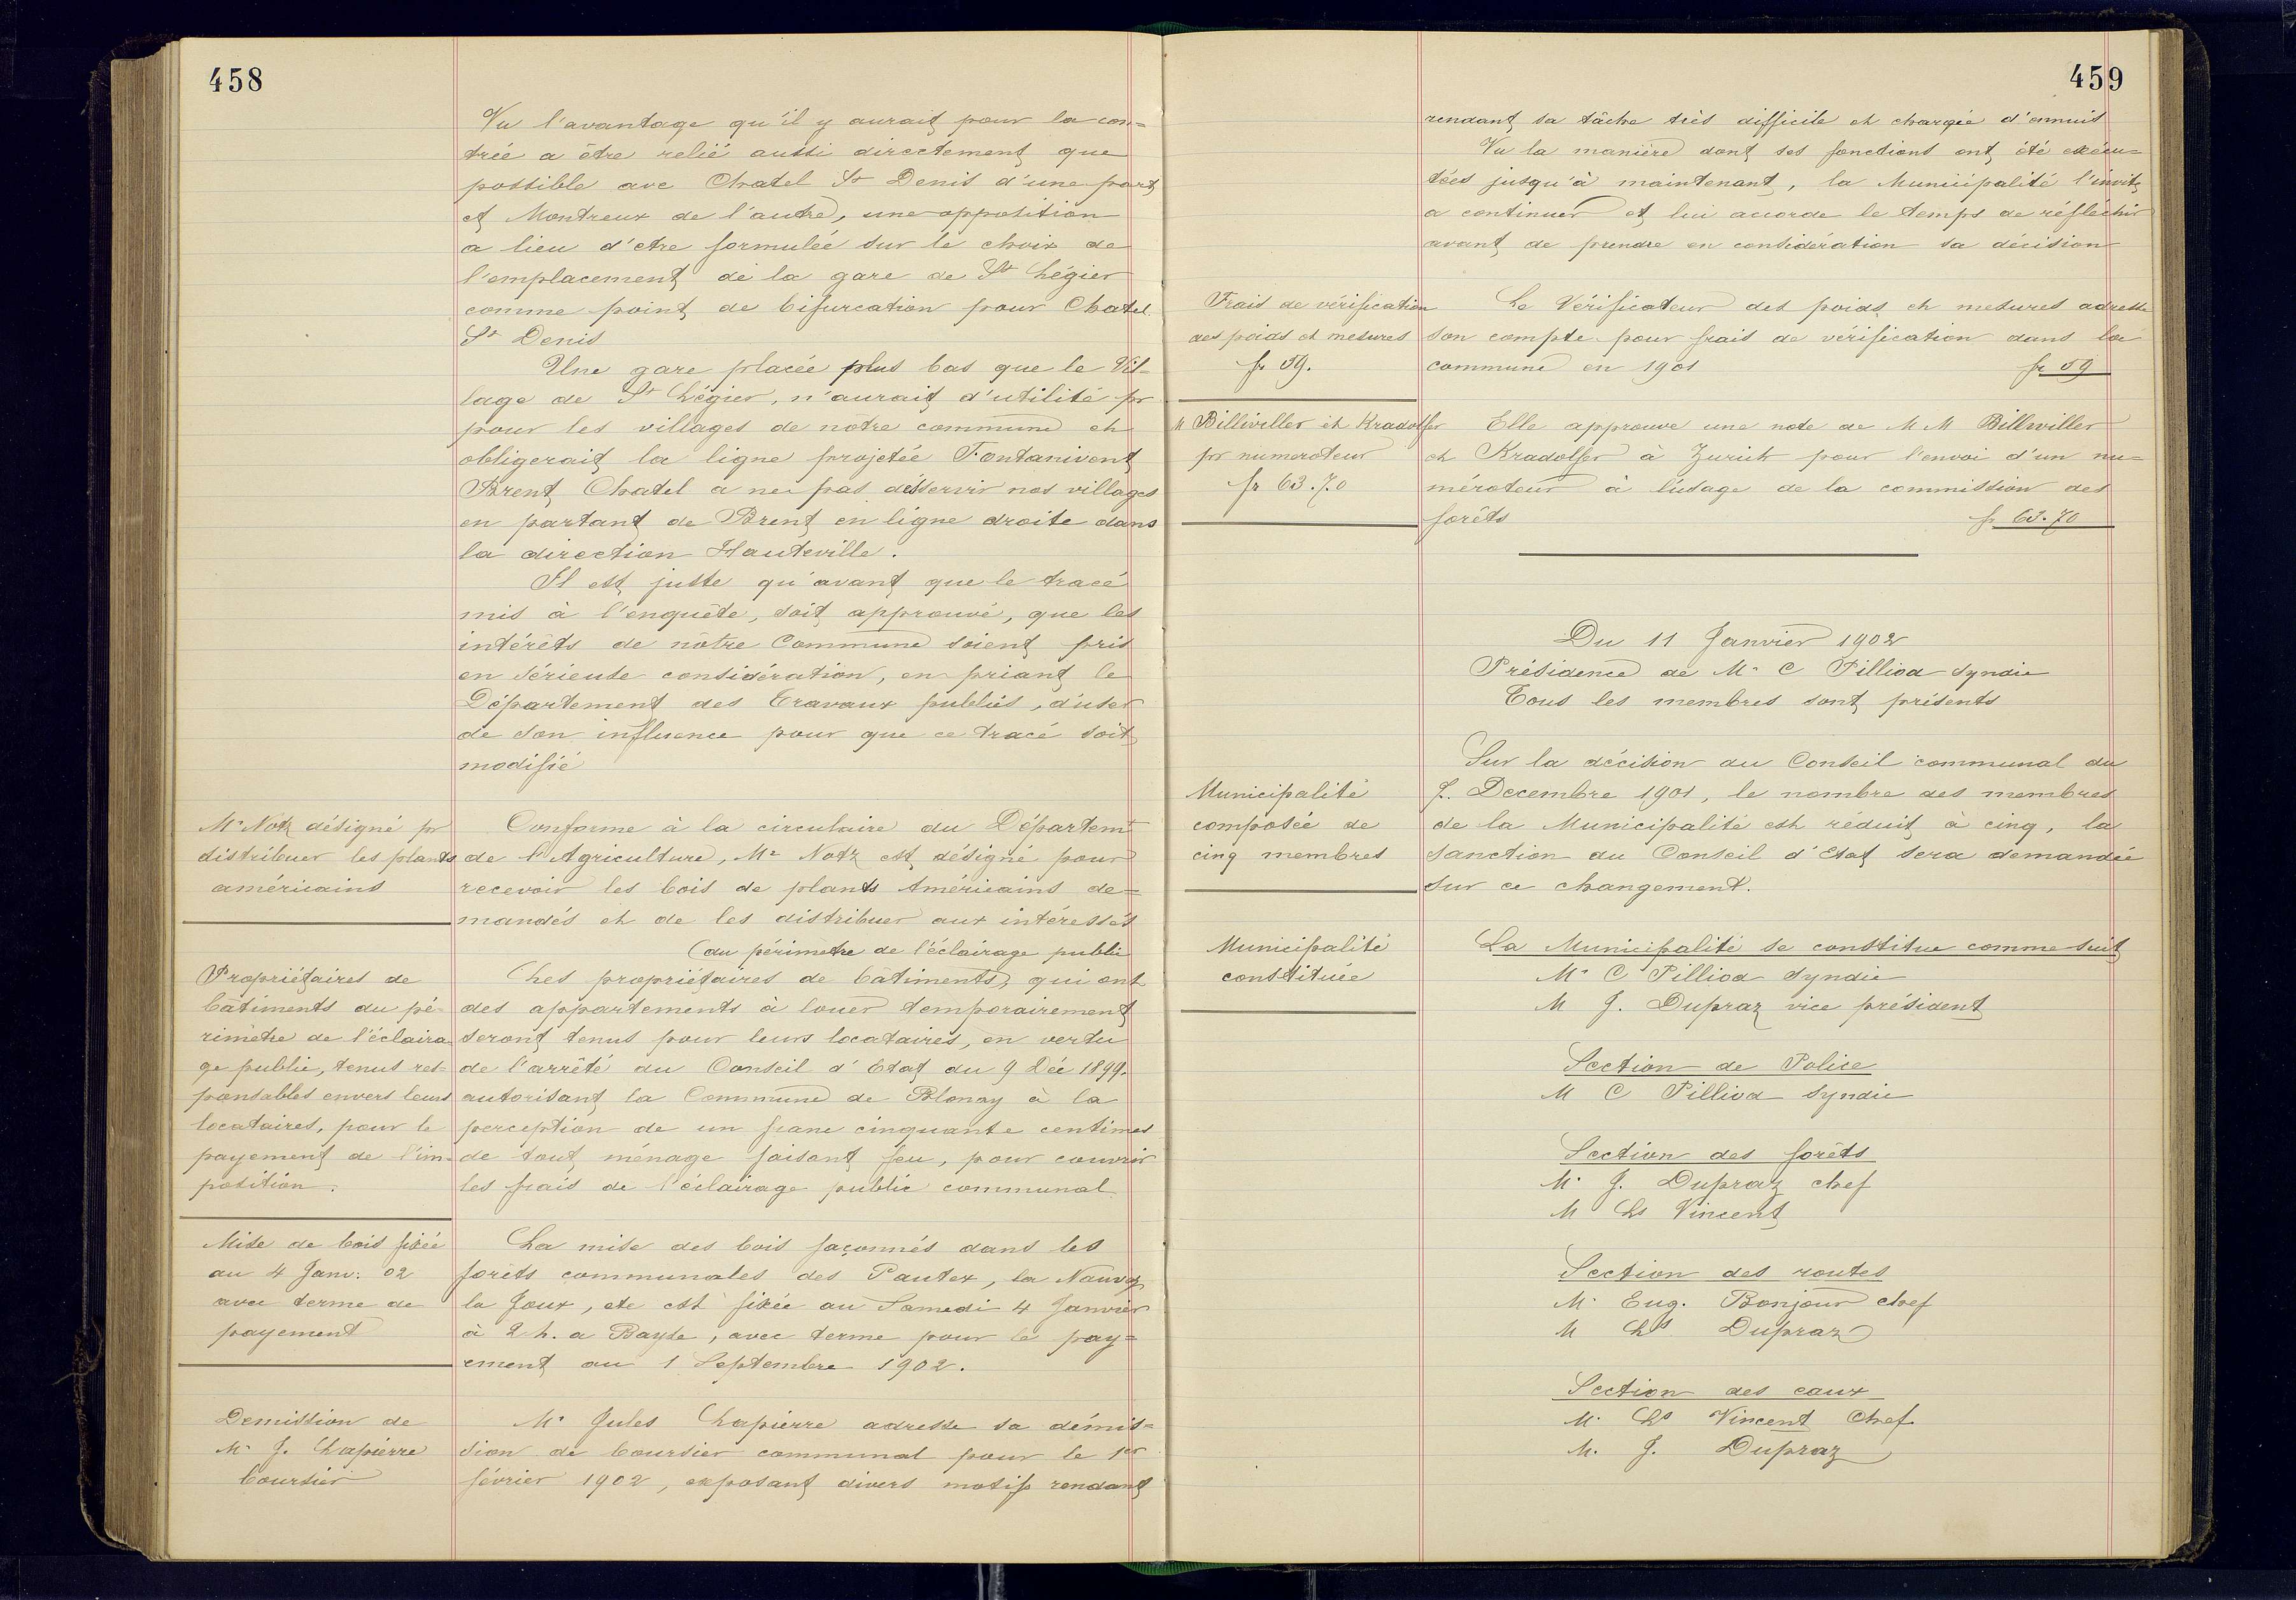 458
Vu l'avantage qu'il y aurait pour la con=
trée a être relié aussi directement que
possible avec Chatel St Denis d'une part
et Montreux de l'autre, une opposition
a lieu d'etre formulée sur le choix de
l'emplacement de la gare de St Légier
comme point de bifurcation pour Chatel
St Denis
Une gare placée plus bas que le Vil-
lage de St Légier, n'aurait d'utilité pr
pour les villages de nôtre commune et
obligerait la ligne projetée Fontanivent
Brent Chatel a ne pas desservir nos villages
en partant de Brent en ligne droite dans
la direction Hauteville.
Il est juste qu'avant que le tracé
mis à l'enquête, soit approuvé, que les
intérêts de nôtre Commune soient pris
en sérieuse considération, en priant le
Département des Travaux publics, d'user
de son influence pour que ce tracé soit
modifié
Mr Notz désigné pr
distribuer les plants
américains
Conforme à la circulaire du Départemt
de l'Agriculture, Mr Notz est désigné pour
recevoir les bois de plants Américains de=
mandés et de les distribuer aux intéressés
Propriétaires de
bâtiments du pé-
rimètre de l'éclaira
ge public, tenus res-
ponsables envers leurs
locataires, pour le
payement de l'im-
position.
(du périmetre de l'éclairage public
Les propriétaires de bâtiments, qui ont
des appartements à louer temporairement
seront tenus pour leurs locataires, en vertu
de l'arrêté du Conseil d'Etat du 9 Déc 1899.
autorisant la Commune de Blonay à la
perception de un franc cinquante centimes
de tout ménage faisant feu, pour couvrir
les frais de l'éclairage public communal
Mise de bois fixée
au 4 Janv. 02
avec terme de
payement
La mise des bois façonnés dans les
forêts communales des Pautex, la
la Joux, etc est fixée au Samedi 4 Janvier
à 2 h. a Bayse, avec terme pour le pay=
ement au 1 Septembre 1902.
Demission de
Mr J. Lapierre
boursier
Mr Jules Lapierre adresse sa démis=
sion de boursier communal pour le 1er
février 1902, exposant divers motifs rendant
459
rendant sa tâche très difficile et chargée d'ennuis
Vu la manière dont ses fonctions ont été exécu=
tées jusqu'à maintenant, la Municipalité l'invite
a continuer et lui accorde le temps de réfléchir
avant de prendre en considération sa décision
Frais de vérification
des poids et mesures
fr 59.
Le Vérificateur des poids et mesures adresse
son compte pour frais de vérification dans la
commune en 1901 fr 59
M Billwiller et Kradolfer
pr numeroteur
fr 63.70
Elle approuve une note de M M Billwiller
et Kradolfer à Zurich pour l'envoi d'un nu=
méroteur à l'usage de la commission des
forêts fr 63.70
Du 11 Janvier 1902
Présidence de Mr C Pilliod syndic
Tous les membres sont présents
Municipalité
composée de
cinq membres
Sur la décision du Conseil communal du
Decembre 1901, le nombre des membres
de la Municipalité est réduit à cinq, la
sanction du Conseil d'Etat sera demandée
sur ce changement.
Municipalité
constituée
La Municipalité se constitue comme suit
Mr C Pilliod Syndic
M J. Dupraz vice président
Section de Police
M C Pilliod syndic
Section des forêts
Mr J. Dupraz chef
M Ls Vincent
Section des routes
Mr Eug. Bonjour chef
M Ls Dupraz
Section des eaux
M. Ls Vincent Chef
M. J. Dupraz